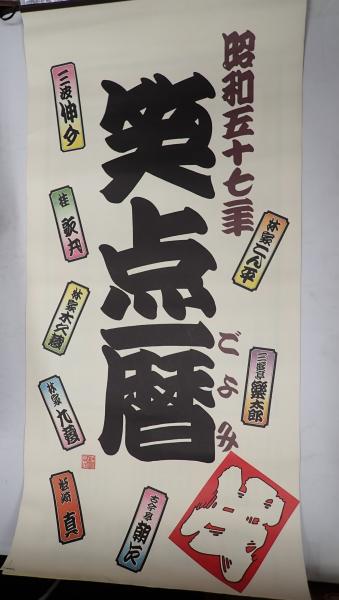 昭和五十七年
笑点暦
ごよみ
三波伸介
桂歌丸
林家木久蔵
林家九蔵
松崎真
林家こん平
三遊亭樂太郎
古今亭朝次
笑